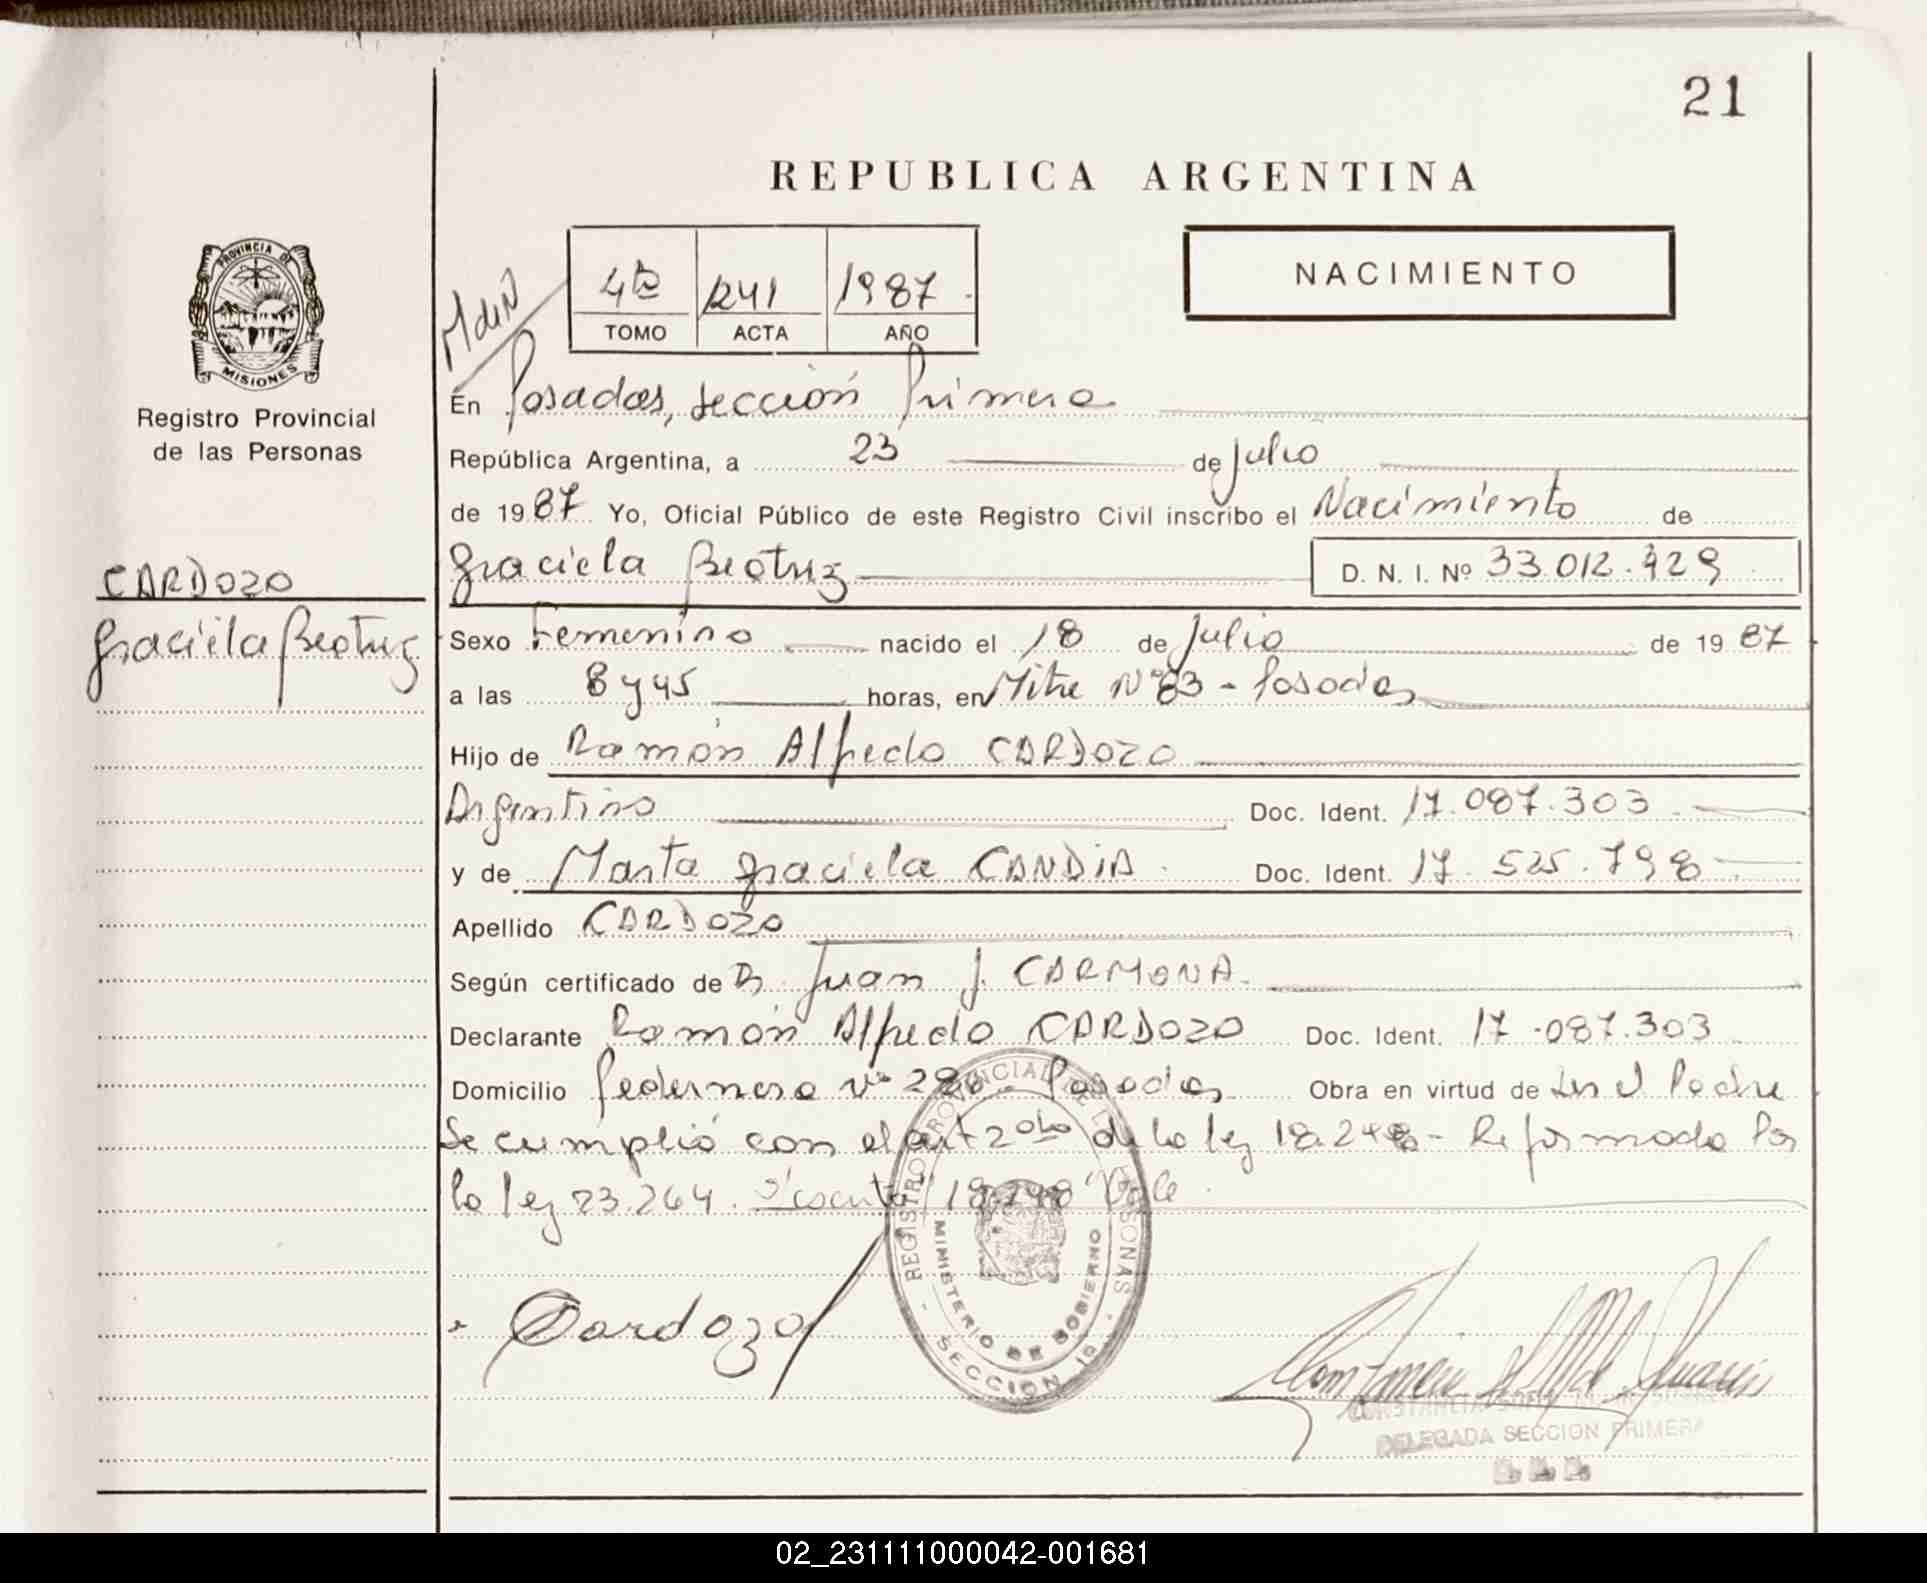 21
REPUBLICA ARGENTINA
PROVINCIA DE
MISIONES
Registro Provincial
de las Personas
CARDOZO
Graciela Beatriz
4to 1241 1987
TOMO ACTA AÑO
NACIMIENTO
En Posadas, Sección Primera
República Argentina, a 23 de Julio
de 1987 Yo, Oficial Público de este Registro Civil inscribo el Nacimiento de
Graciela Beatriz D. N. I. Nº 33.012.429
Sexo Femenino nacido el 18 de Julio de 1987
a las 8 y 45 horas, en Mitre Nº 83 - Posadas
Hijo de Ramón Alfredo CARDOZO
Argentino Doc. Ident. 17.087.303
y de Marta Graciela CANDIA Doc. Ident. 17.525.798
Apellido CARDOZO
Según certificado de Dr Juan J. CARMONA
Declarante Ramón Alfredo CARDOZO Doc. Ident. 17.087.303
Domicilio Pedernera Nº Posadas Obra en virtud de Ser el Padre
Se cumplió con el art 2 de la ley 18.248 - Reformada Por
la ley 23.264. "18.248" Vale.
REGISTRO PROVINCIAL DE LAS PERSONAS
MINISTERIO DE GOBIERNO
SECCION 1a
Cardozo
DELEGADA SECCION PRIMERA
02_231111000042-001681